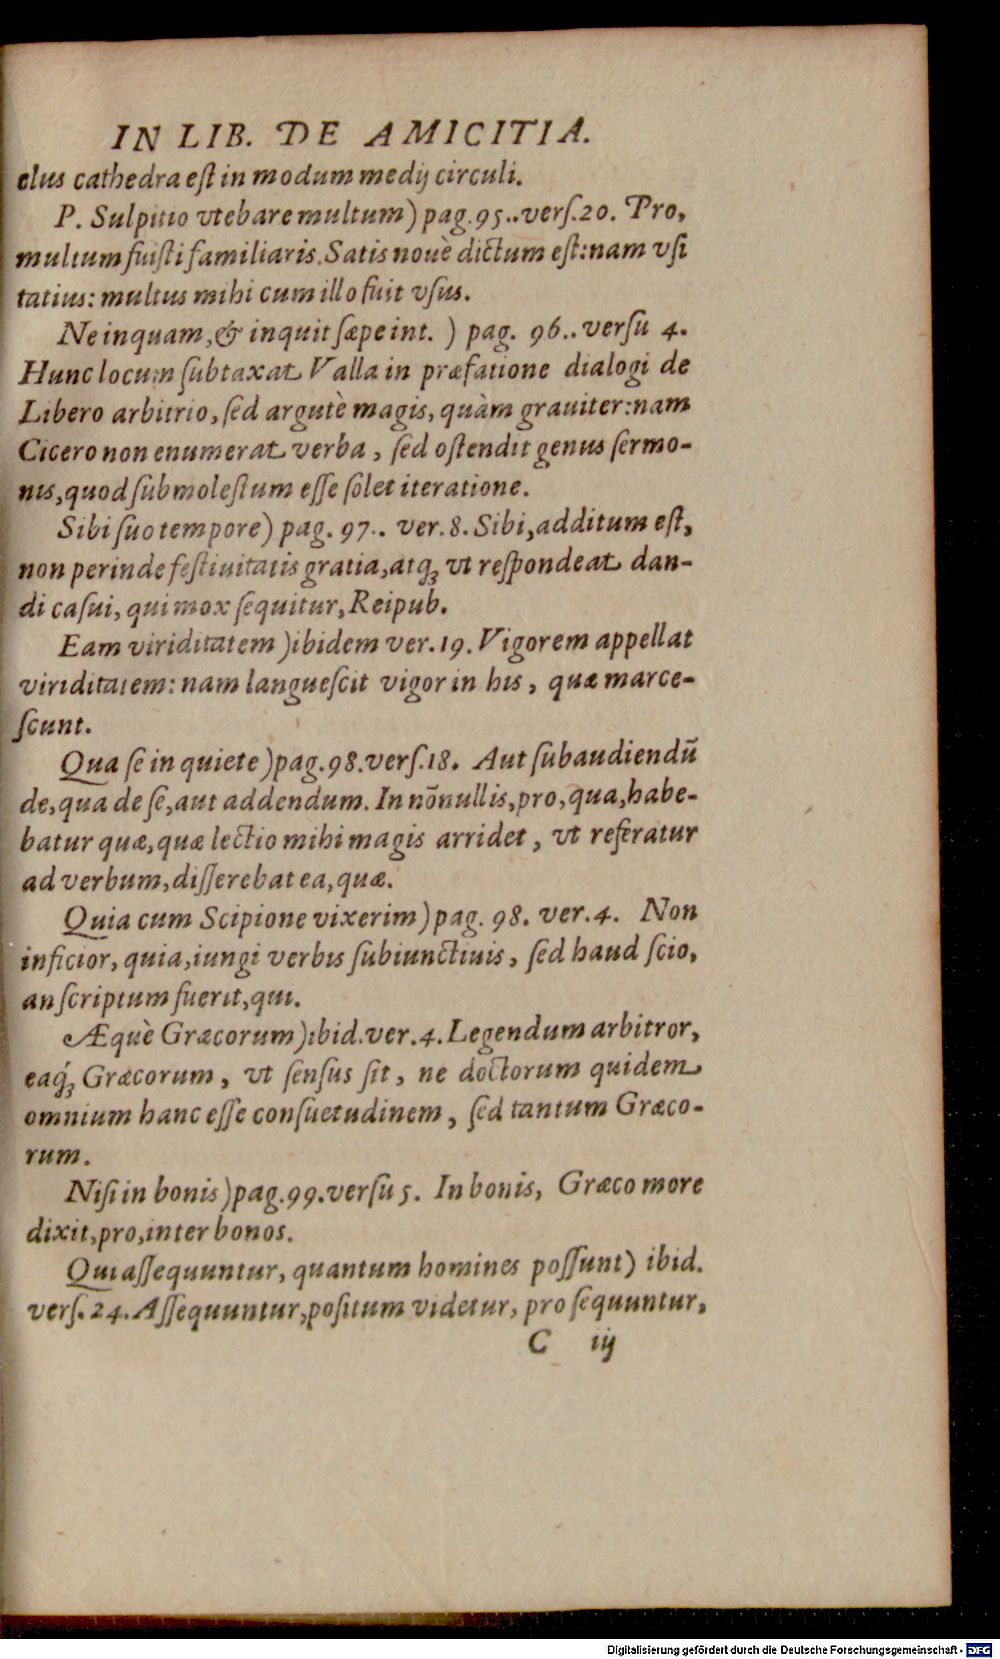 IN LIB. DE AMICITIA.
clus cathedra eſt in modum medij circuli.
P. Sulpitio vtebare multum) pag.95..verſ.20. Pro,
multum fuiſti familiaris. Satis nouè dictum eſt: nam vſi
tatius: multus mihi cum illo fuit vſus.
Ne inquam, & inquit ſæpe int. ) pag. 96.. verſu 4.
Hunc locum ſubtaxat Valla in præfatione dialogi de
Libero arbitrio, ſed argutè magis, quàm grauiter: nam
Cicero non enumerat verba, ſed oſtendit genus ſermo-
nis, quod ſubmoleſtum eſſe ſolet iteratione.
Sibi ſuo tempore) pag. 97.. ver.8. Sibi, additum eſt,
non perinde feſtiuitatis gratia, atq; vt reſpondeat dan-
di caſui, qui mox ſequitur, Reipub.
Eam viriditatem )ibidem ver.19. Vigorem appellat
viriditatem: nam langueſcit vigor in his, quæ marce-
ſcunt.
Qua ſe in quiete )pag.98.verſ.18. Aut ſubaudiendū
de, qua de ſe, aut addendum. In nōnullis, pro, qua, habe-
batur quæ, quæ lectio mihi magis arridet, vt referatur
ad verbum, diſſerebat ea, quæ.
Quia cum Scipione vixerim) pag. 98. ver.4. Non
inficior, quia, iungi verbis ſubiunctiuis, ſed haud ſcio,
an ſcriptum fuerit, qui.
Æquè Græcorum) ibid.ver.4. Legendum arbitror,
eaq́; Græcorum, vt ſenſus ſit, ne doctorum quidem
omnium hanc eſſe conſuetudinem, ſed tantum Græco-
rum.
Niſi in bonis) pag.99.verſu 5. In bonis, Græco more
dixit, pro, inter bonos.
Qui aſſequuntur, quantum homines poſſunt) ibid.
verſ.24. Aſſequuntur, poſitum videtur, pro ſequuntur,
C iij
Digitalisierung gefördert durch die Deutsche Forschungsgemeinschaft - DFG